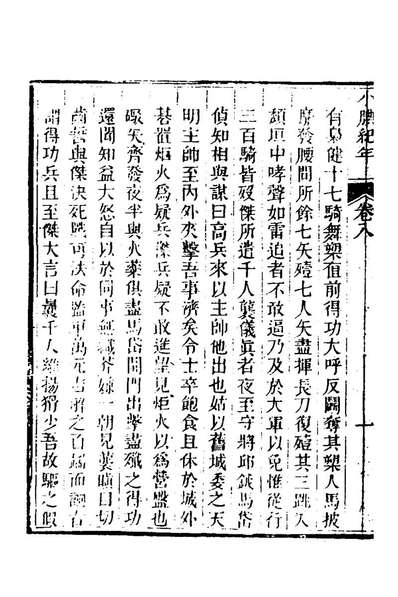 小腆紀年 卷八 一
有梟健十七騎舞槊值前得功大呼反鬬奪其槊人馬披
靡發腰間所餘七矢殪七人矢盡揮長刀復殪其三跳入
頽垣中哮聲如雷追者不敢逼乃及於大軍以免惟從行
三百騎皆歿傑所遣千人襲儀眞者夜至守將邱鉞馬岱
偵知相與謀曰高兵來以主帥他出也姑以舊城委之天
明主帥至內外夾擊吾事濟矣令士卒飽食且休於城外
碁置炬火爲疑兵傑兵疑不敢進望見炬火以爲營盤也
礮矢齊發夜半與火藥俱盡馬岱開門出擊盡殲之得功
還聞知益大怒自以於同事無纖芥嫌一朝見襲瞋目切
齒誓與傑決死戰可法命監軍萬元吉解之百
得功兵且至傑大言曰襲千人維揚猾少吾故驅之假